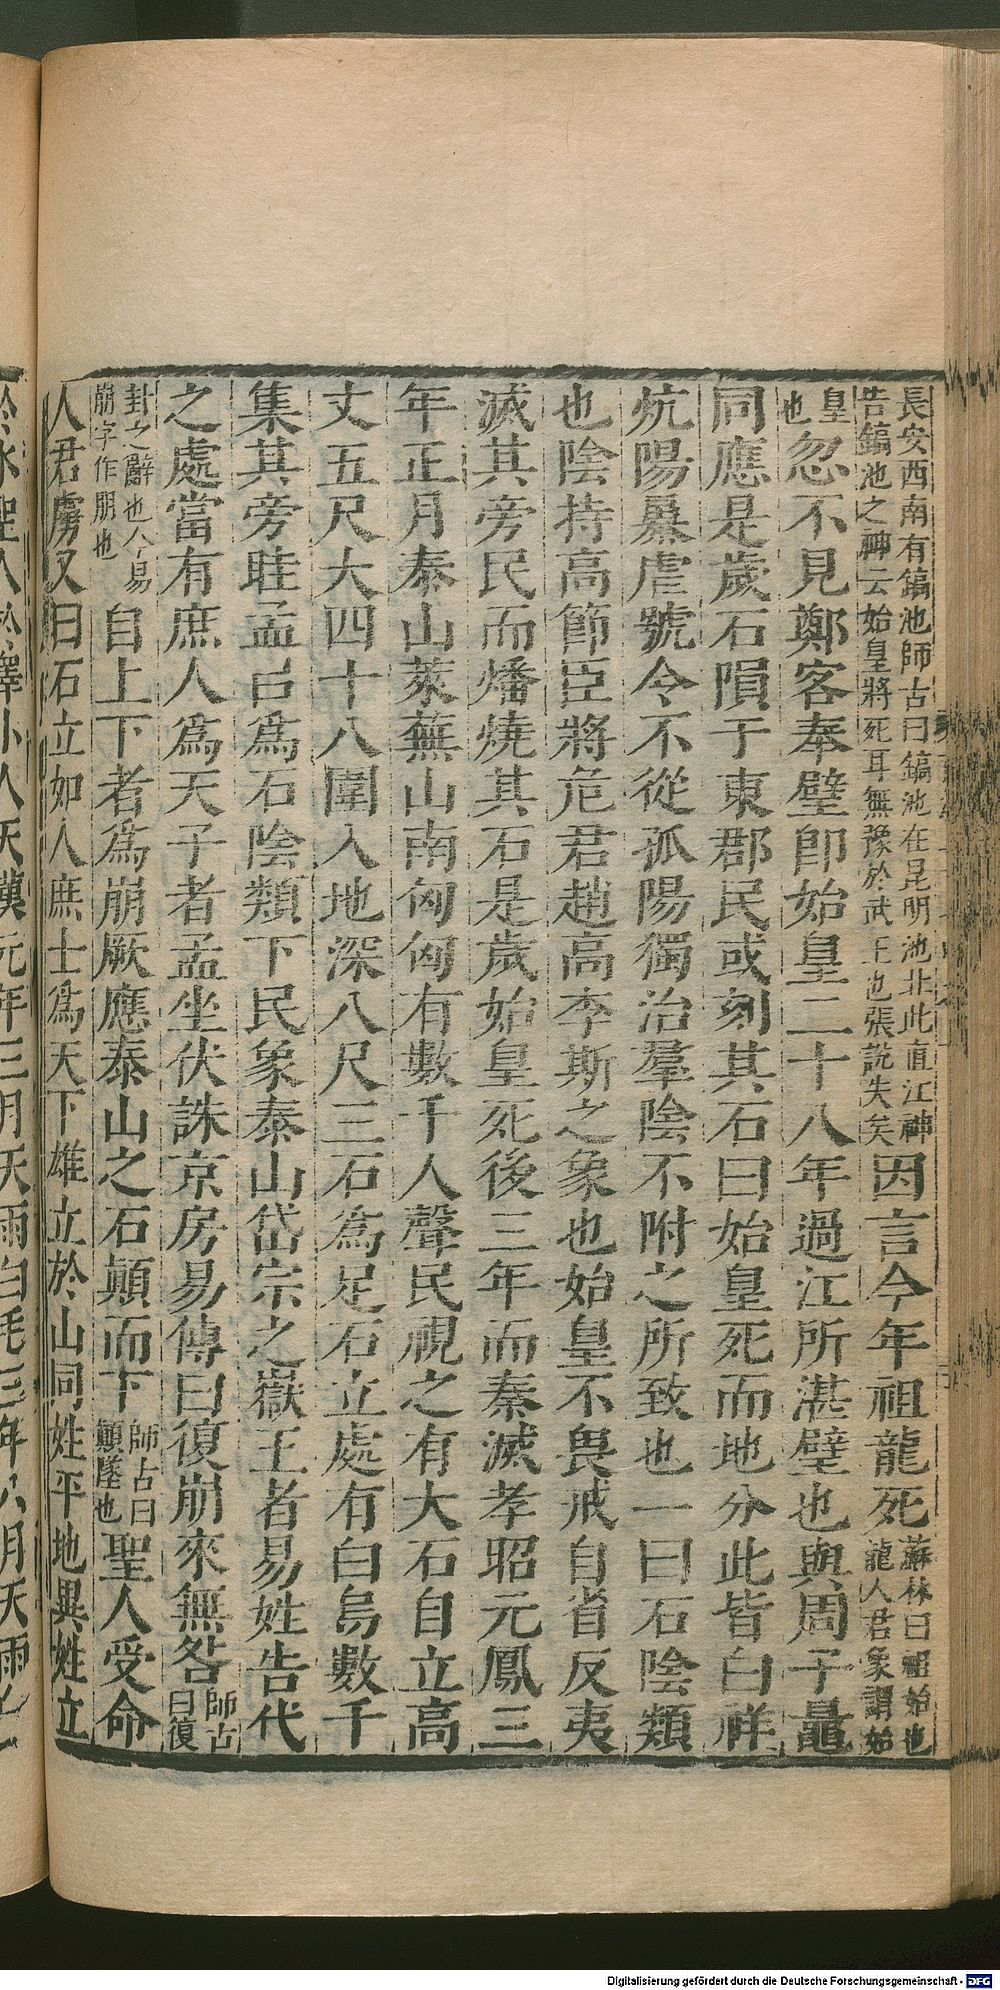 長安西南有鎬池師古曰鎬池在昆明池北此直江神
告鎬池之神云始皇將死耳無豫於武王也張說失矣
因言今年祖龍死
蘇林曰祖始也
龍人君象謂始
皇
也
忽不見鄭客奉璧卽始皇二十八年過江所湛璧也與周子鼂
同應是歲石隕于東郡民或刻其石曰始皇死而地分此皆白祥
炕陽暴虐號令不從孤陽獨治羣陰不附之所致也一曰石陰類
也陰持高節臣將危君趙高李斯之象也始皇不畏戒自省反夷
滅其旁民而燔燒其石是歲始皇死後三年而秦滅孝昭元鳳三
年正月泰山萊蕪山南匈匈有數千人聲民視之有大石自立高
丈五尺大四十八圍入地深八尺三石爲足石立處有白烏數千
集其旁眭孟㠯爲石陰類下民象泰山岱宗之嶽王者易姓告代
之處當有庶人爲天子者孟坐伏誅京房易傳曰復崩來無咎
師古
曰復
卦之辭也今易
崩字作朋也
自上下者爲崩厥應泰山之石顚而下
師古曰
顚墜也
聖人受命
人君虜又曰石立如人庶士爲天下雄立於山同姓平地異姓立
於水聖人於澤小人天漢元年三月天雨白毛三年八月天雨
Digitalisierung gefördert durch die Deutsche Forschungsgemeinschaft - DFG